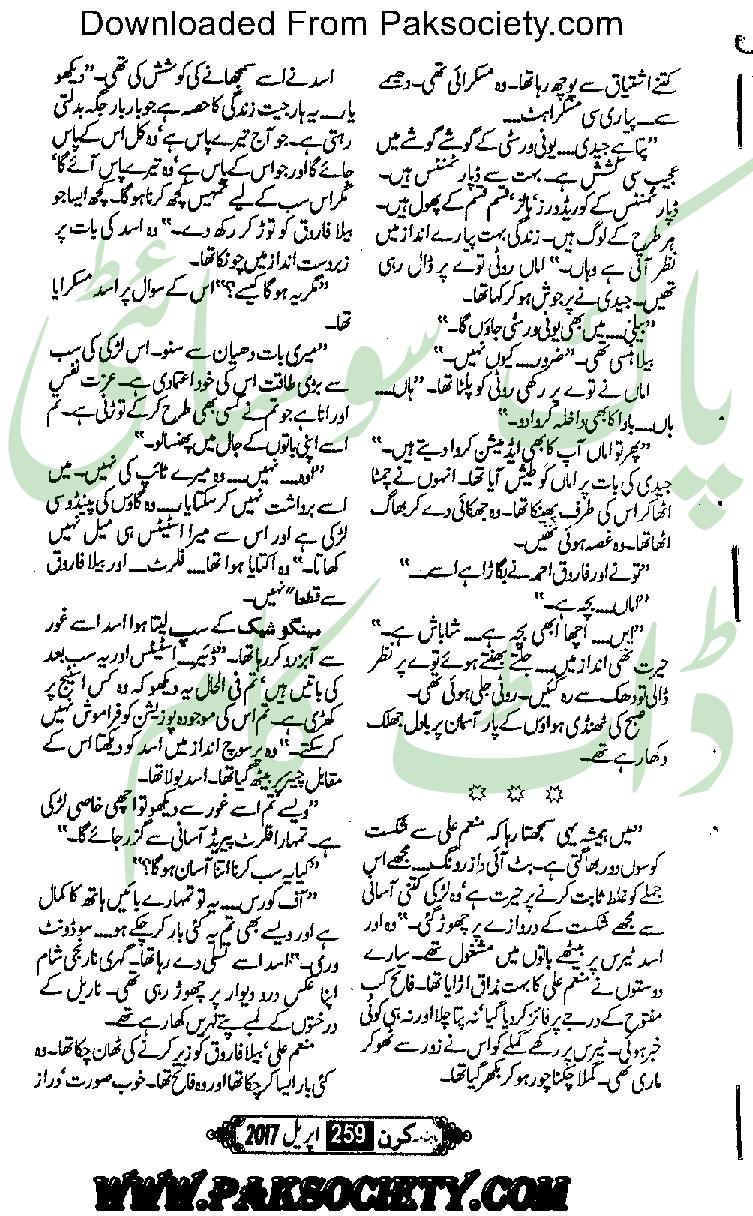 Downloaded From Paksociety.com
کتنے اشتیاق سے پوچھ رہا تھا۔ وہ مسکرائی تھی۔ دھیمے
سے۔۔۔ پیاری سی مسکراہٹ۔۔۔
"پتا ہے جیدی۔۔۔ یونی ورسٹی کے گوشے گوشے میں
عجیب سی کشش ہے۔ بہت سے ڈپارٹمنٹس ہیں۔
ڈپارٹمنٹس کے کوریڈورز، باڑ، قسم قسم کے پھول ہیں۔
ہر طرح کے لوگ ہیں۔ زندگی بہت پیارے انداز میں
نظر آتی ہے وہاں۔" اماں روٹی توے پر ڈال رہی
تھیں۔ جیدی نے پرجوش ہو کر کہا تھا۔
"بیلی۔۔۔ میں بھی یونی ورسٹی جاؤں گا۔"
بیلا ہنسی تھی۔ "ضرور۔۔۔ کیوں نہیں۔"
اماں نے توے پر رکھی روٹی کو پلٹا تھا۔ "ہاں۔۔۔
ہاں۔۔۔ باوا کا بھی داخلہ کروا دو۔"
"پھر تو اماں آپ کا بھی ایڈمیشن کروا دیتے ہیں۔"
جیدی کی بات پر اماں کو طیش آیا تھا۔ انہوں نے چمٹا
اٹھا کر اس کی طرف پھینکا تھا۔ وہ جھکائی دے کر بھاگ
اٹھا تھا۔ وہ غصہ ہوئی تھیں۔
"تو نے اور فاروق احمد نے بگاڑا ہے اسے۔۔۔"
"اماں۔۔۔ بچہ ہے۔"
"ایں۔۔۔ اچھا ابھی بچہ ہے۔۔۔ شاباش ہے۔"
حیرت تھی انداز میں۔۔۔ جلتے بھنتے ہوئے توے پر نظر
ڈالی تو دھک سے رہ گئیں۔ روٹی جلی ہوئی تھی۔
صبح کی ٹھنڈی ہواؤں کے پار آسمان پر بادل جھلک
دکھا رہے تھے۔
"میں ہمیشہ یہی سمجھتا رہا کہ منعم علی سے شکست
کوسوں دور بھاگتی ہے۔ بٹ آئی واز رونگ۔۔۔ مجھے اس
جملے کو غلط ثابت کرنے پر حیرت ہے، وہ لڑکی کتنی آسانی
سے مجھے شکست کے دروازے پر چھوڑ گئی۔" وہ اور
اسد ٹیرس پر بیٹھے باتوں میں مشغول تھے۔ سارے
دوستوں نے منعم علی کا بہت مذاق اڑایا تھا۔ فاتح کب
مفتوح کے درجے پر فائز کر دیا گیا، نہ پتا چلا اور نہ ہی کوئی
خبر ہوئی۔ ٹیرس پر رکھے گملے کو اس نے زور سے ٹھوکر
ماری تھی۔ گملا چکنا چور ہو کر بکھر گیا تھا۔
اسد نے اسے سمجھانے کی کوشش کی تھی۔ "دیکھو
یار۔۔۔ یہ ہار جیت زندگی کا حصہ ہے جو بار بار جگہ بدلتی
رہتی ہے۔ جو آج تیرے پاس ہے، وہ کل اس کے پاس
جائے گا اور جو اس کے پاس ہے، وہ تیرے پاس آئے گا،
مگر اس سب کے لیے تمہیں کچھ کرنا ہو گا۔ کچھ ایسا جو
بیلا فاروق کو توڑ کر رکھ دے۔" وہ اسد کی بات پر
زبردست انداز میں چونکا تھا۔
"مگر یہ ہو گا کیسے؟" اس کے سوال پر اسد مسکرایا
تھا۔
"میری بات دھیان سے سنو۔ اس لڑکی کی سب
سے بڑی طاقت اس کی خود اعتمادی ہے۔ عزت نفس
اور انا ہے جو تم نے کسی بھی طرح کر کے توڑنی ہے۔ تم
اسے اپنی باتوں کے جال میں پھنسا لو۔"
"اوہ۔۔۔ نہیں۔۔۔ وہ میرے ٹائپ کی نہیں۔ میں
اسے برداشت نہیں کر سکتا یار۔۔۔ وہ گاؤں کی پینڈو سی
لڑکی ہے اور اس سے میرا اسٹیٹس ہی میل نہیں
کھاتا۔" وہ اکتایا ہوا تھا۔۔۔ فلرٹ۔۔۔ اور بیلا فاروق
سے قطعاً "نہیں۔
مینگو شیک کے سپ لیتا ہوا اسد اسے غور
سے آبزرو کر رہا تھا۔ "ڈئیر۔۔۔ اسٹیٹس اور یہ سب بعد
کی باتیں ہیں، تم فی الحال یہ دیکھو کہ وہ کس اسٹیج پر
کھڑی ہے۔ تم اس کی موجودہ پوزیشن کو فراموش نہیں
کر سکتے۔" وہ پرسوچ انداز میں اسد کو دیکھتا اس کے
مقابل چیئر پر بیٹھ گیا تھا۔ اسد بولا تھا۔
"ویسے تم اسے غور سے دیکھو تو اچھی خاصی لڑکی
ہے۔ تمہارا فلرٹ پیریڈ آسانی سے گزر جائے گا۔"
"کیا یہ سب کرنا اتنا آسان ہو گا؟"
"آف کورس۔۔۔ یہ تو تمہارے بائیں ہاتھ کا کمال
ہے اور ویسے بھی تم یہ کئی بار کر چکے ہو۔۔۔ سو ڈونٹ
وری۔" اسد اسے تسلی دے رہا تھا۔ گہری نارنجی شام
اپنا عکس در و دیوار پر چھوڑ رہی تھی۔ ناریل کے
درختوں کے لمبے پتے لہریں کھا رہے تھے۔
منعم علی، بیلا فاروق کو زیر کرنے کی ٹھان چکا تھا۔ وہ
کئی بار ایسا کر چکا تھا اور وہ فاتح تھا۔ خوب صورت، دراز
ماہنامہ کرن 259 اپریل 2017
WWW.PAKSOCIETY.COM
پاک سوسائٹی
ڈاٹ کام